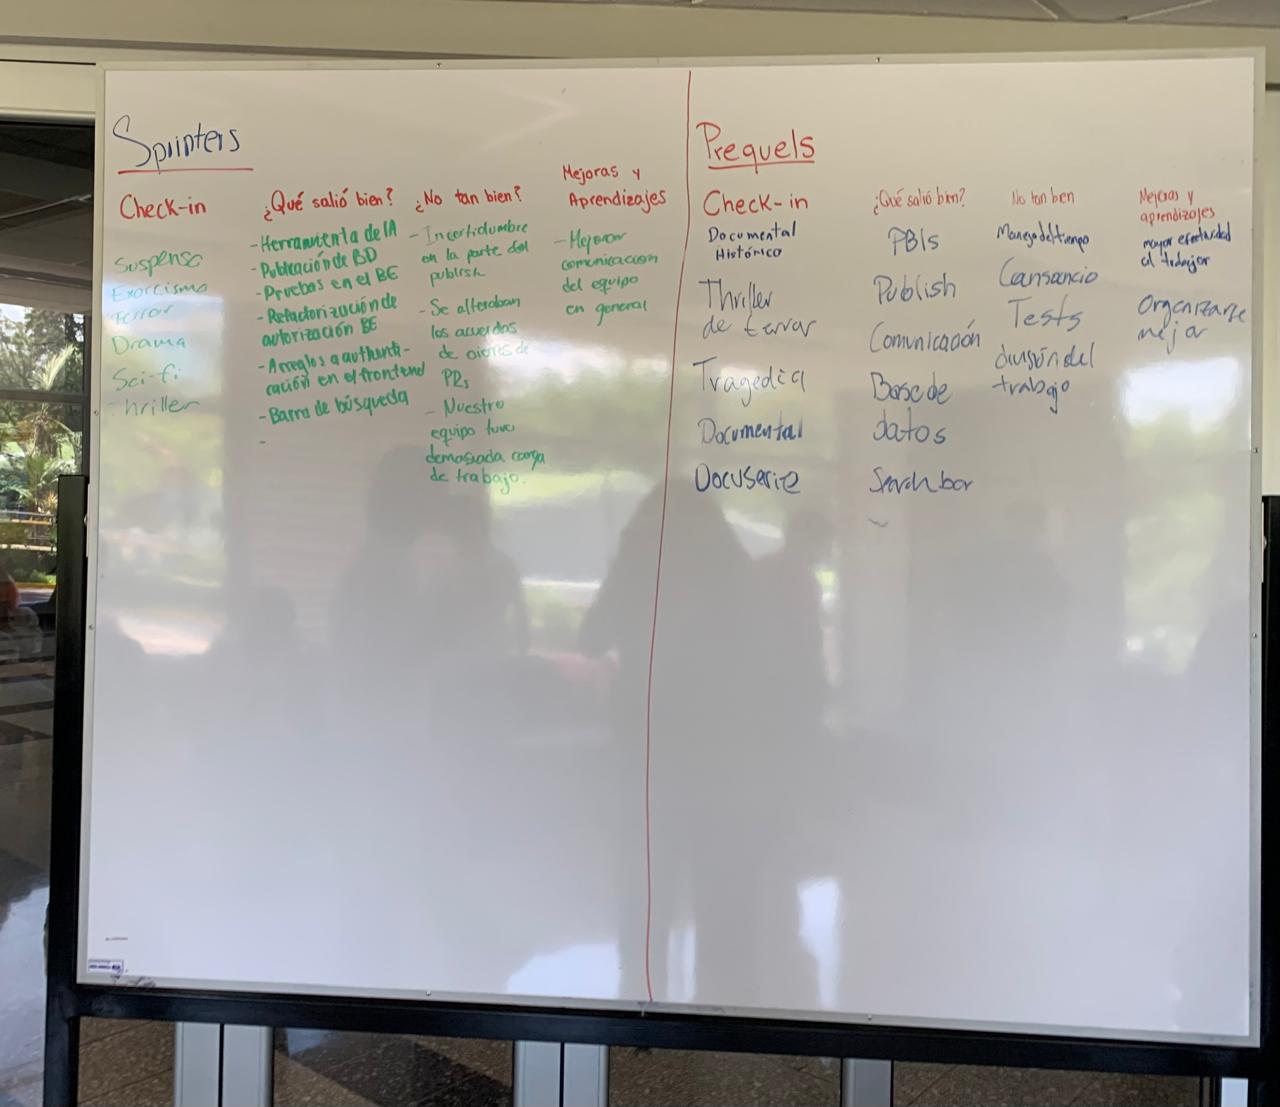 Sprinters
Check-in
Suspenso
Exorcismo
Terror
Drama
Sci-fi
Thriller
¿Qué salió bien?
- Herramienta de IA
- Publicación de BD
- Pruebas en el BE
- Refactorización de
autorización BE
- Arreglos a authenti-
cación en el frontend
- Barra de búsqueda
-
¿No tan bien?
- Incertidumbre
en la parte del
publish
- Se alteraban
los acuerdos
de cierres de
PRs
- Nuestro
equipo tuvo
demasiada carga
de trabajo.
Mejoras y
Aprendizajes
- Mejorar
comunicacion
del equipo
en general
Prequels
Check-in
Documental
Histórico
Thriller
de terror
Tragedia
Documental
Docuserie
¿Qué salió bien?
PBIs
Publish
Comunicación
Base de
datos
Search bar
No tan bien
Manejo del tiempo
Cansancio
Tests
división del
trabajo
Mejoras y
aprendizajes
mayor efectividad
al trabajar
Organizarse
mejor